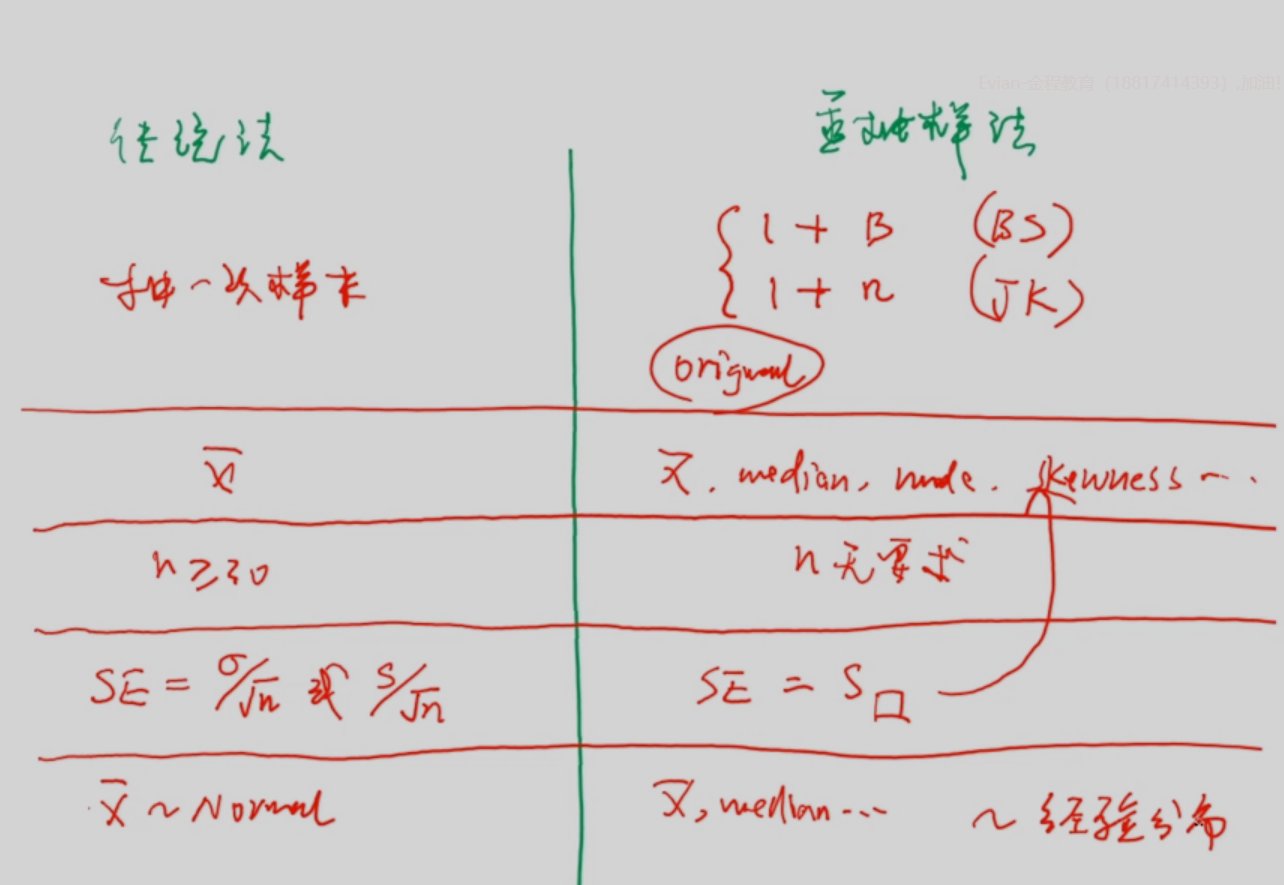 Evian-金程教育 (18817414393)
传统法 重抽样法
抽一次样本 1 + B (BS)
1 + n (JK)
original
x̄ x̄, median, mode. skewness ...
n ≥ 30 n 无要求
SE = σ/√n 或 s/√n SE = S□
x̄ ~ Normal x̄, median... ~ 经验分布